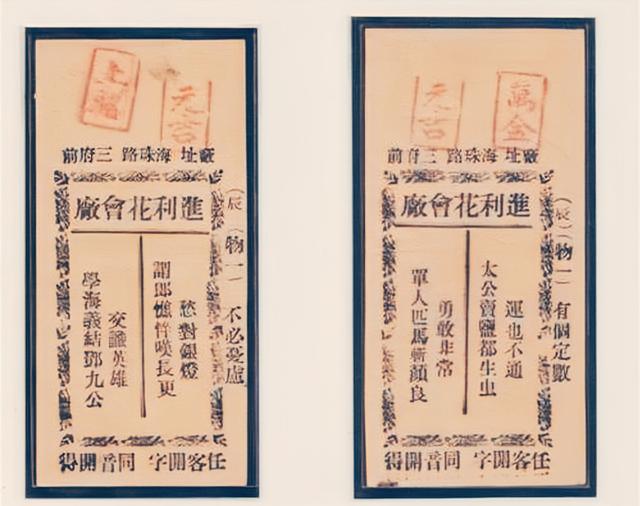 元吉
廠址 海珠路 三府前
進利花會廠
（辰）（物一）不必憂慮
愁對銀燈
謂郎憔悴嘆長更
交識英雄
學海義結鄧九公
任客開字 同音開得
萬金
元吉
廠址 海珠路 三府前
進利花會廠
（辰）（物一）有個定數
運也不通
太公賣鹽都生虫
勇敢非常
單人匹馬斬顏良
任客開字 同音開得